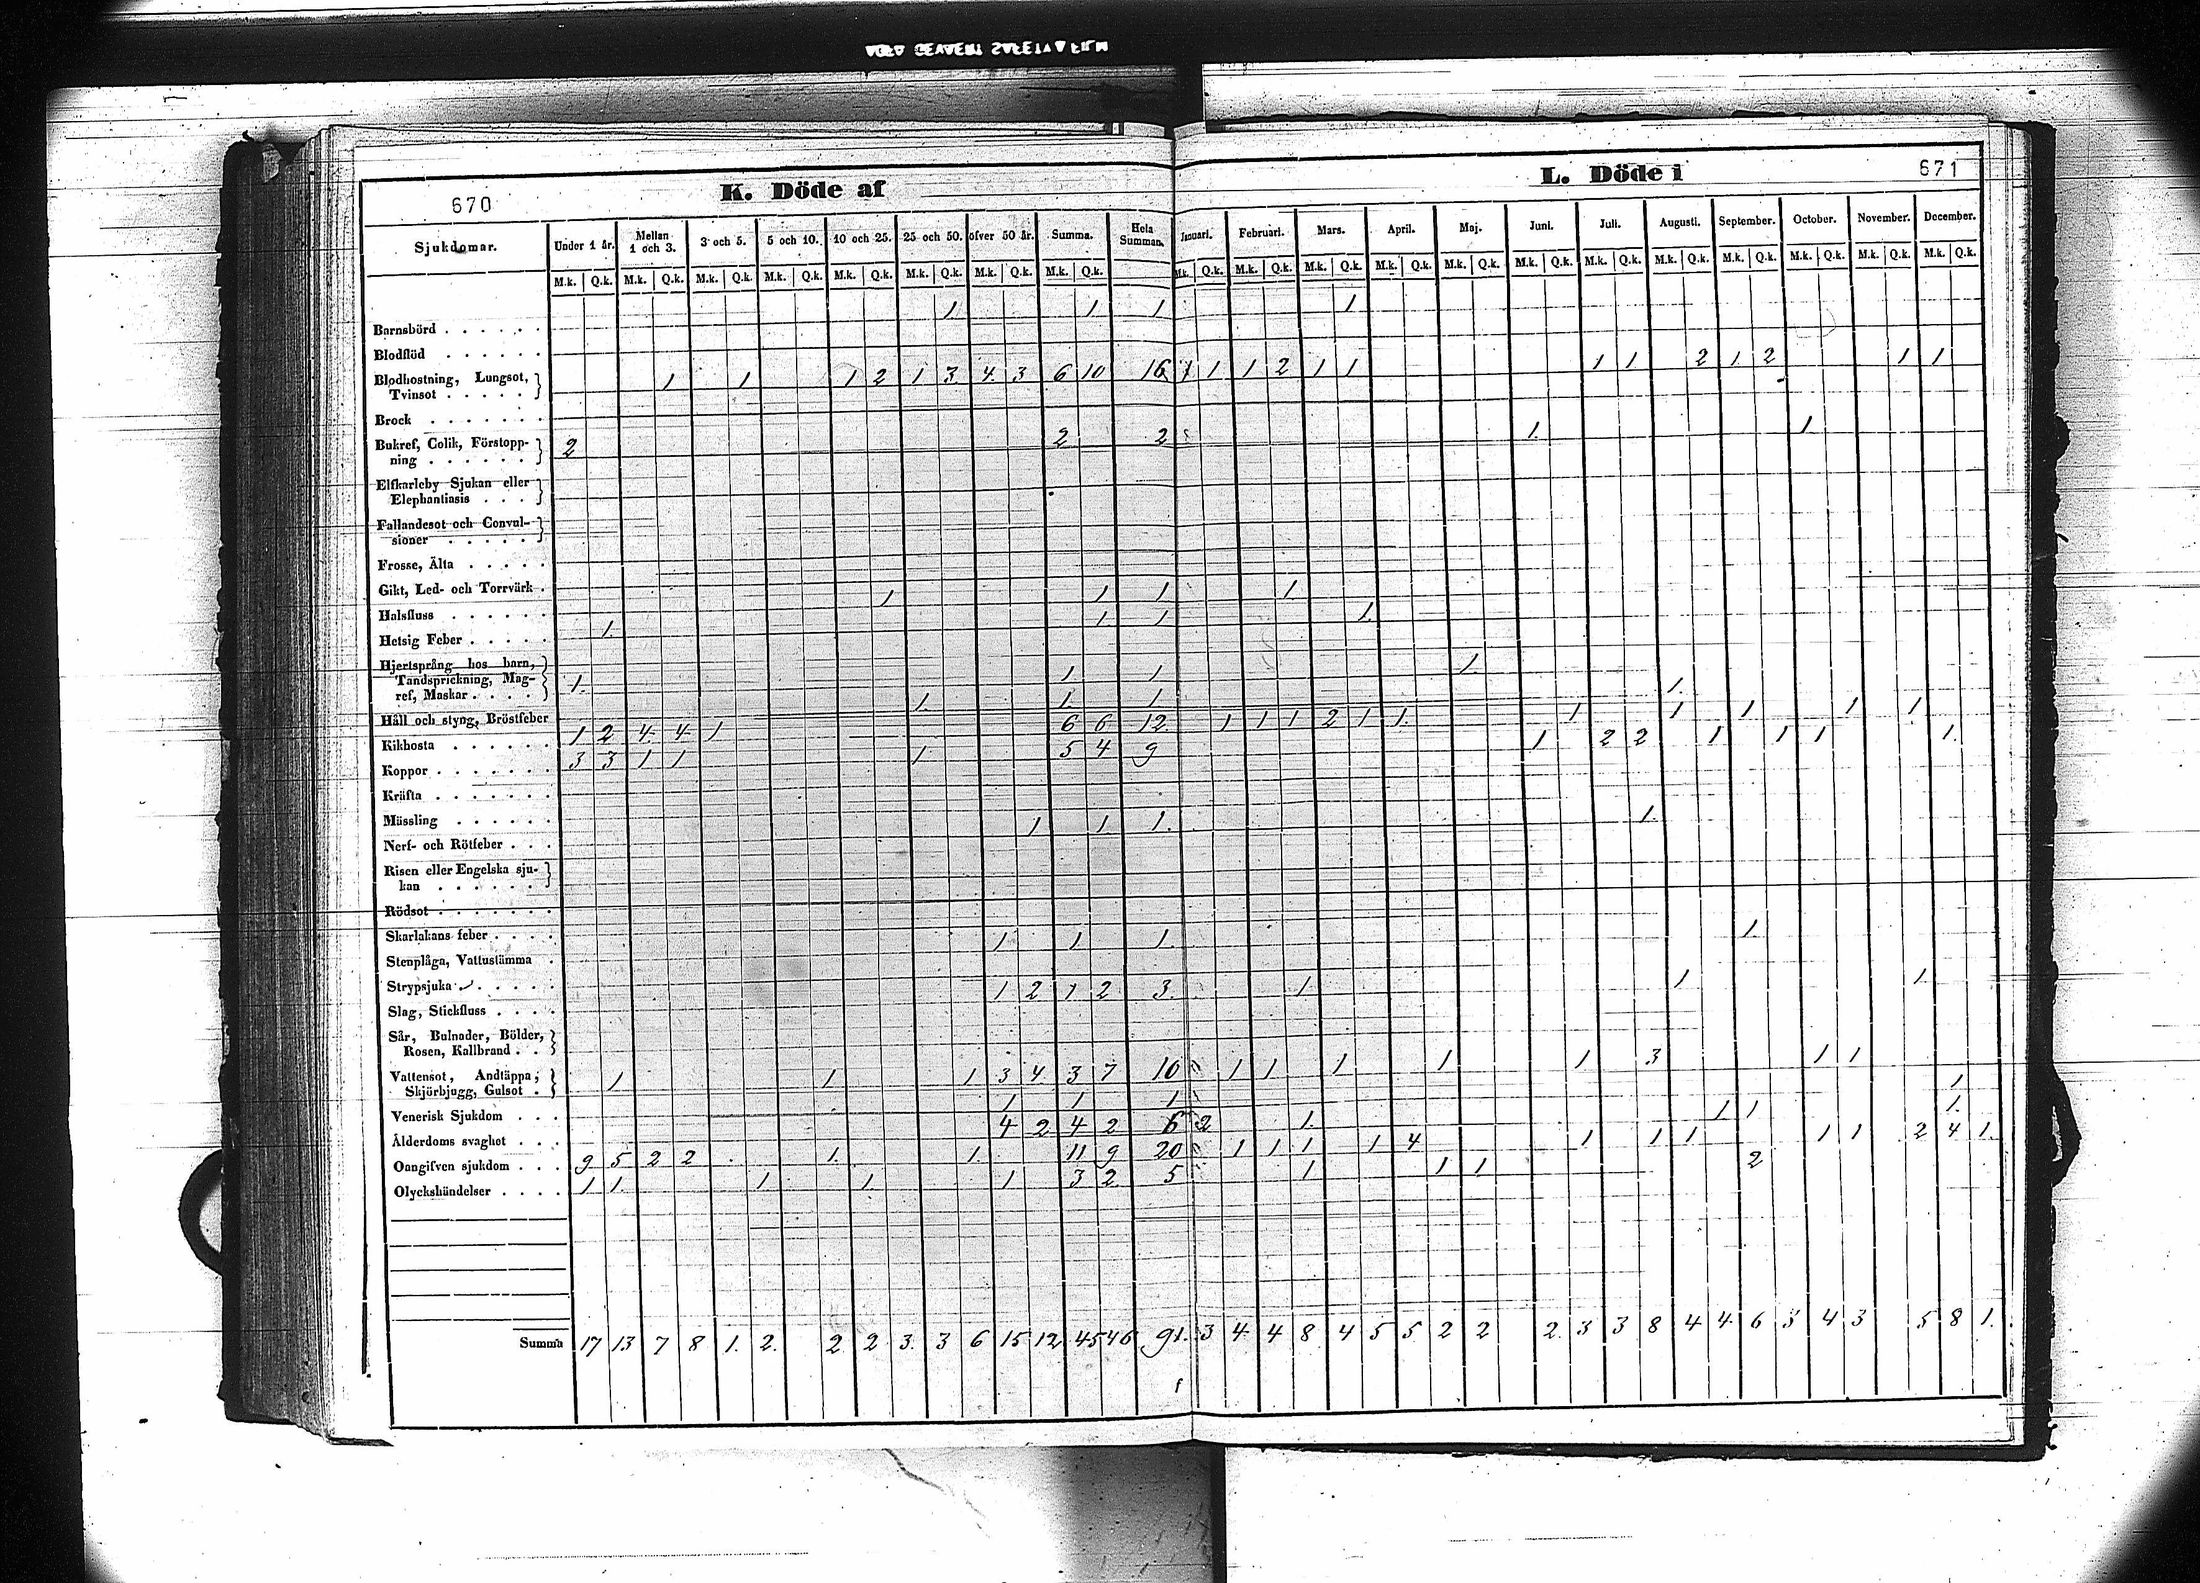 670
K. Döde af
L. Döde i
671
Sjukdomar. Under 1 år. Mellan 1 och 3. 3 och 5. 5 och 10. 10 och 25. 25 och 50. öfver 50 år. Summa. Hela Summan. Januari. Februari. Mars. April. Maj. Juni. Juli. Augusti. September. October. November. December.
M.k. Q.k. M.k. Q.k. M.k. Q.k. M.k. Q.k. M.k. Q.k. M.k. Q.k. M.k. Q.k. M.k. Q.k. M.k. Q.k. M.k. Q.k. M.k. Q.k. M.k. Q.k. M.k. Q.k. M.k. Q.k. M.k. Q.k. M.k. Q.k. M.k. Q.k. M.k. Q.k. M.k. Q.k. M.k. Q.k.
1 1 1 1
Barnsbörd
Blodflöd
Blodhostning, Lungsot, 1 1 1 2 1 3 4 3 6 10 16 1 1 1 2 1 1 1 1 2 1 2 1 1
Tvinsot
Brock
Bukref, Colik, Förstopp- 2 2 2 1 1
ning
Elfkarleby Sjukan eller
Elephantiasis
Fallandesot och Convul-
sioner
Frosse, Älta
Gikt, Led- och Torrvärk 1 1 1 1
Halsfluss 1 1 1 1
Hetsig Feber
Hjertsprång hos barn,
Tandsprickning, Mag- 1 1 1 1
ref, Maskar 1 1 1 1
Håll och styng, Bröstfeber 1 2 4 4 1 6 6 12 1 1 1 2 1 1 1 1 1 1 1
Kikhosta 3 3 1 1 1 5 4 9 1 2 2 1 1 1 1
Koppor
Kräfta
Mässling 1 1 1 1
Nerf- och Rötfeber
Risen eller Engelska sju-
kan
Rödsot
Skarlakans feber 1 1 1 1
Stenplåga, Vattustämma
Strypsjuka 1 2 1 2 3 1 1 1
Slag, Stickfluss
Sår, Bulnader, Bölder,
Rosen, Kallbrand
Vattensot, Andtäppa, 1 1 1 3 4 3 7 10 1 1 1 1 1 3 1 1
Skjörbjugg, Gulsot 1 1 1 1
Venerisk Sjukdom 4 2 4 2 6 2 1 1 1 1
Ålderdoms svaghet
Oangifven sjukdom 9 5 2 2 1 1 11 9 20 1 1 1 1 4 1 1 1 1 1 2 4 1
Olyckshändelser 1 1 1 1 1 3 2 5 1 1 1 2
Summa 17 13 7 8 1 2 2 2 3 3 6 15 12 45 46 91 3 4 4 8 4 5 5 2 2 2 3 3 8 4 4 6 3 4 3 5 8 1